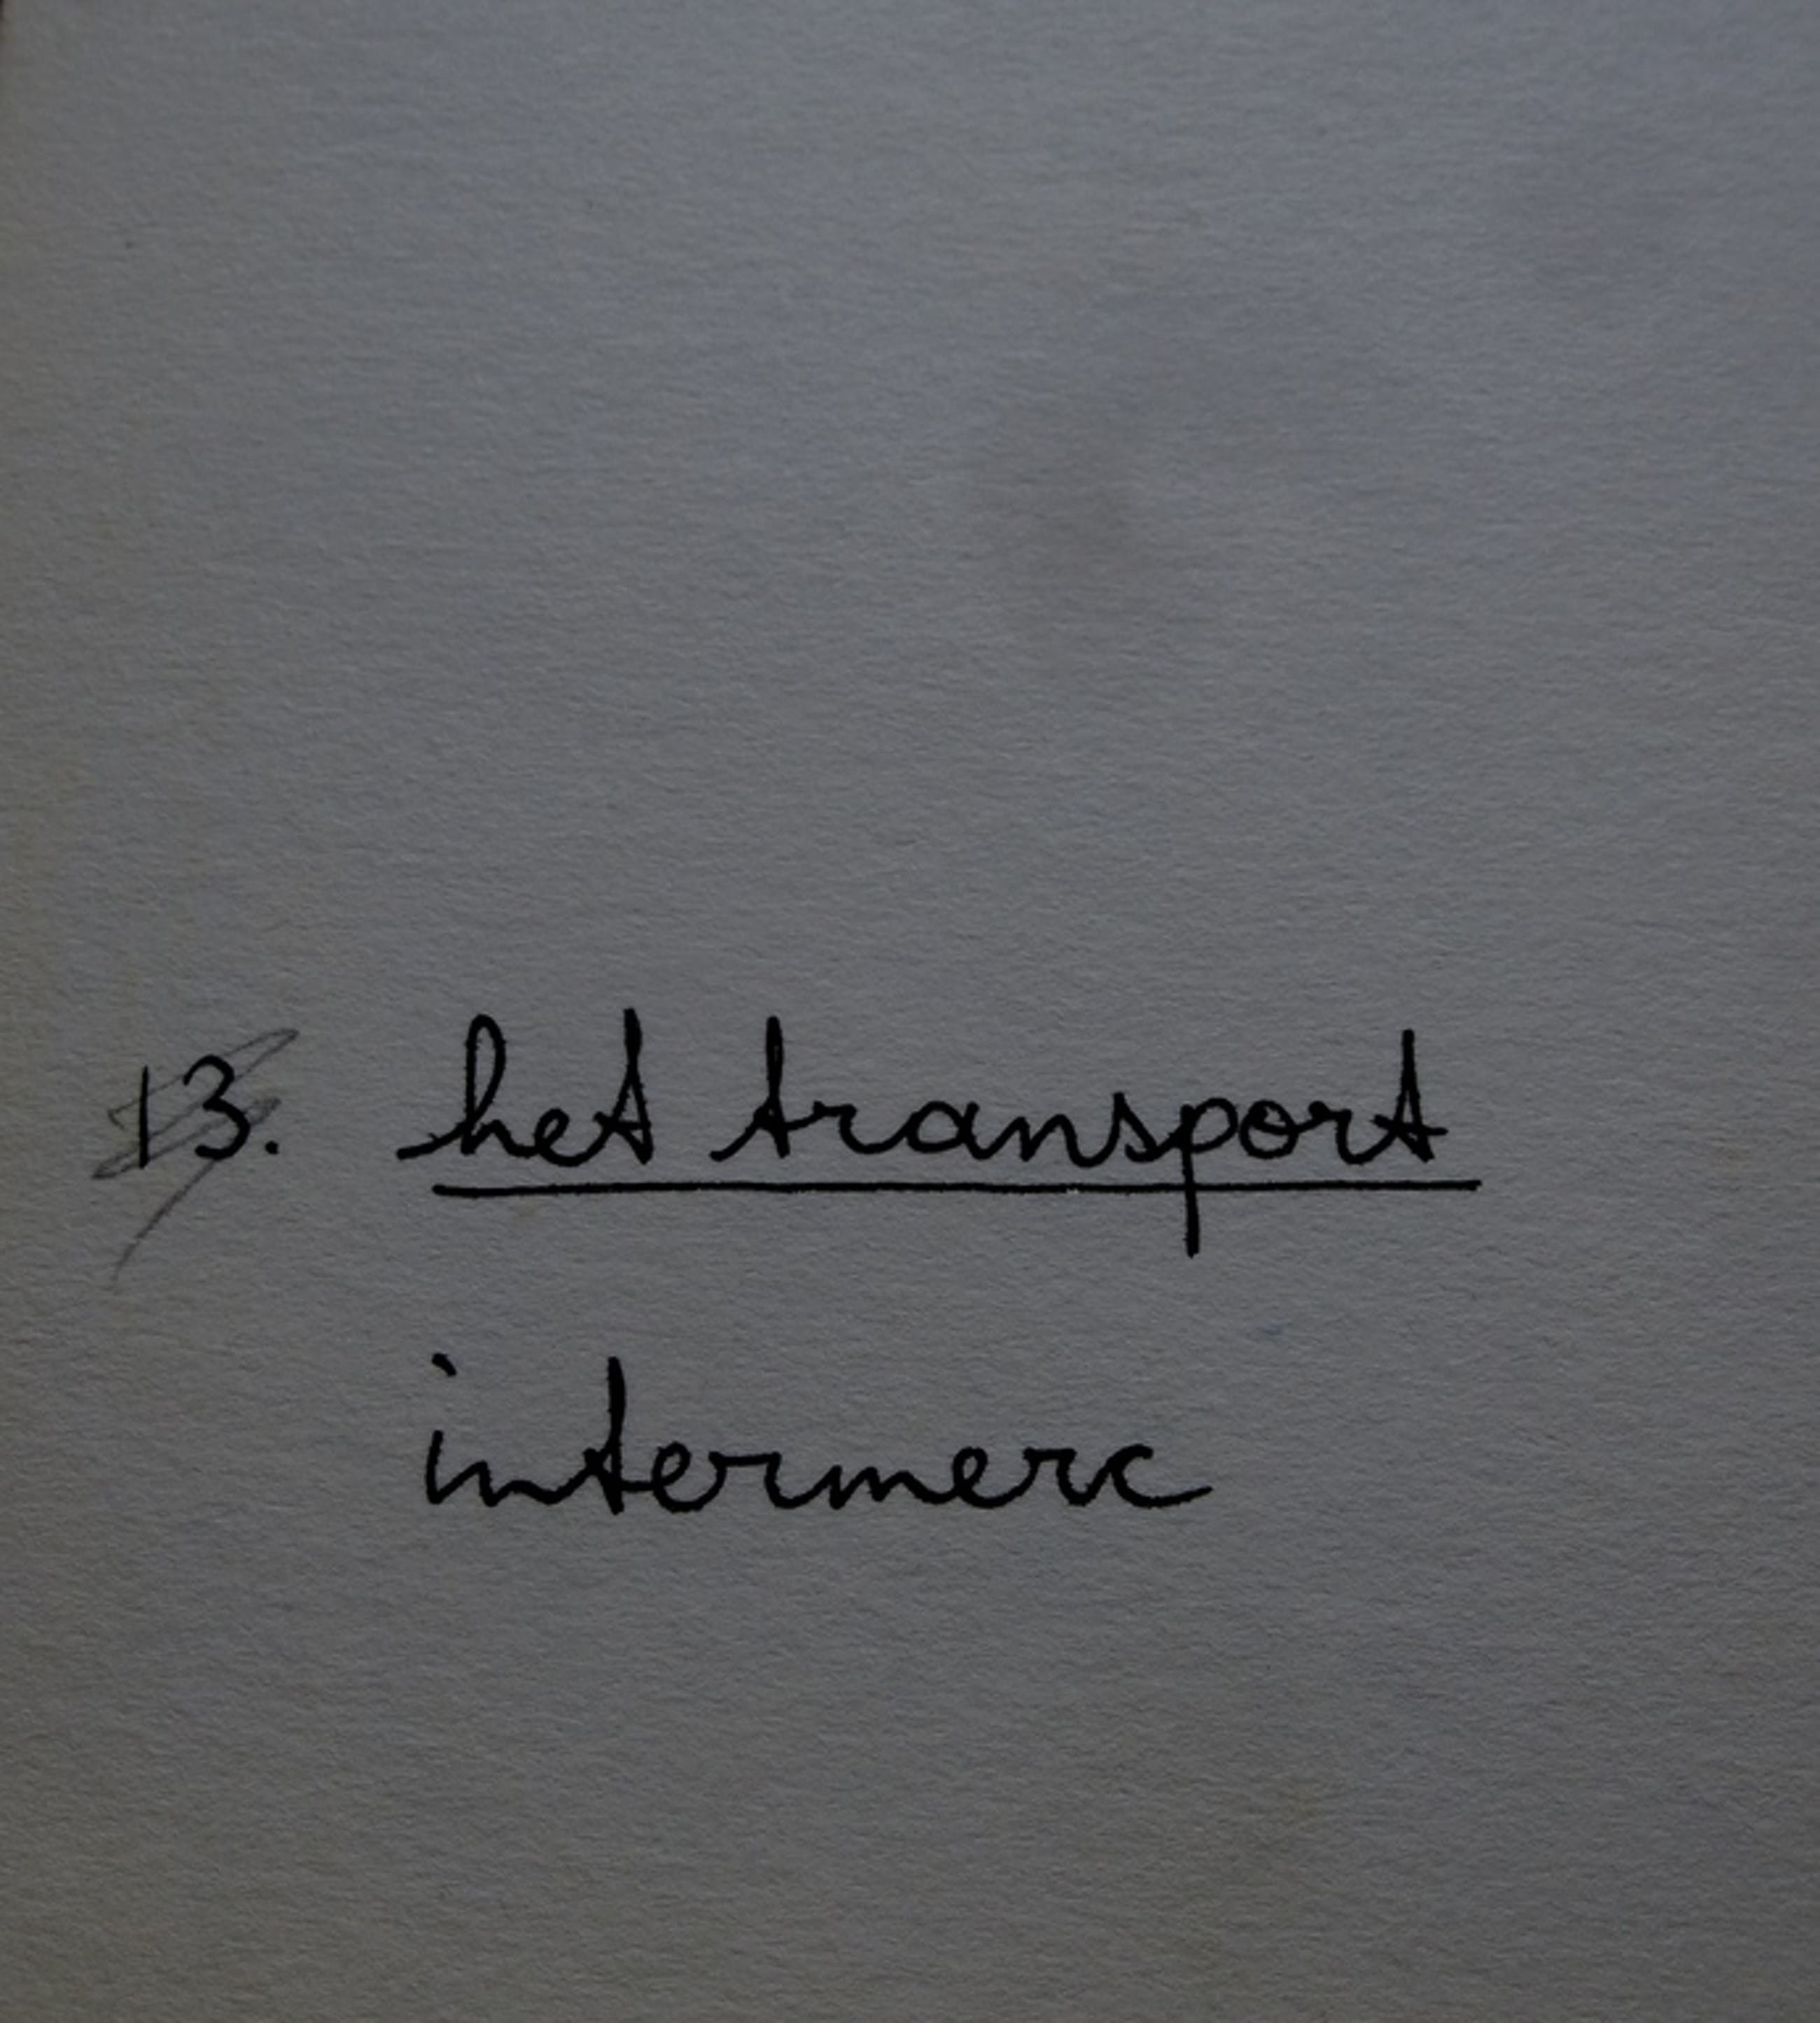 13. het transport
intermerc